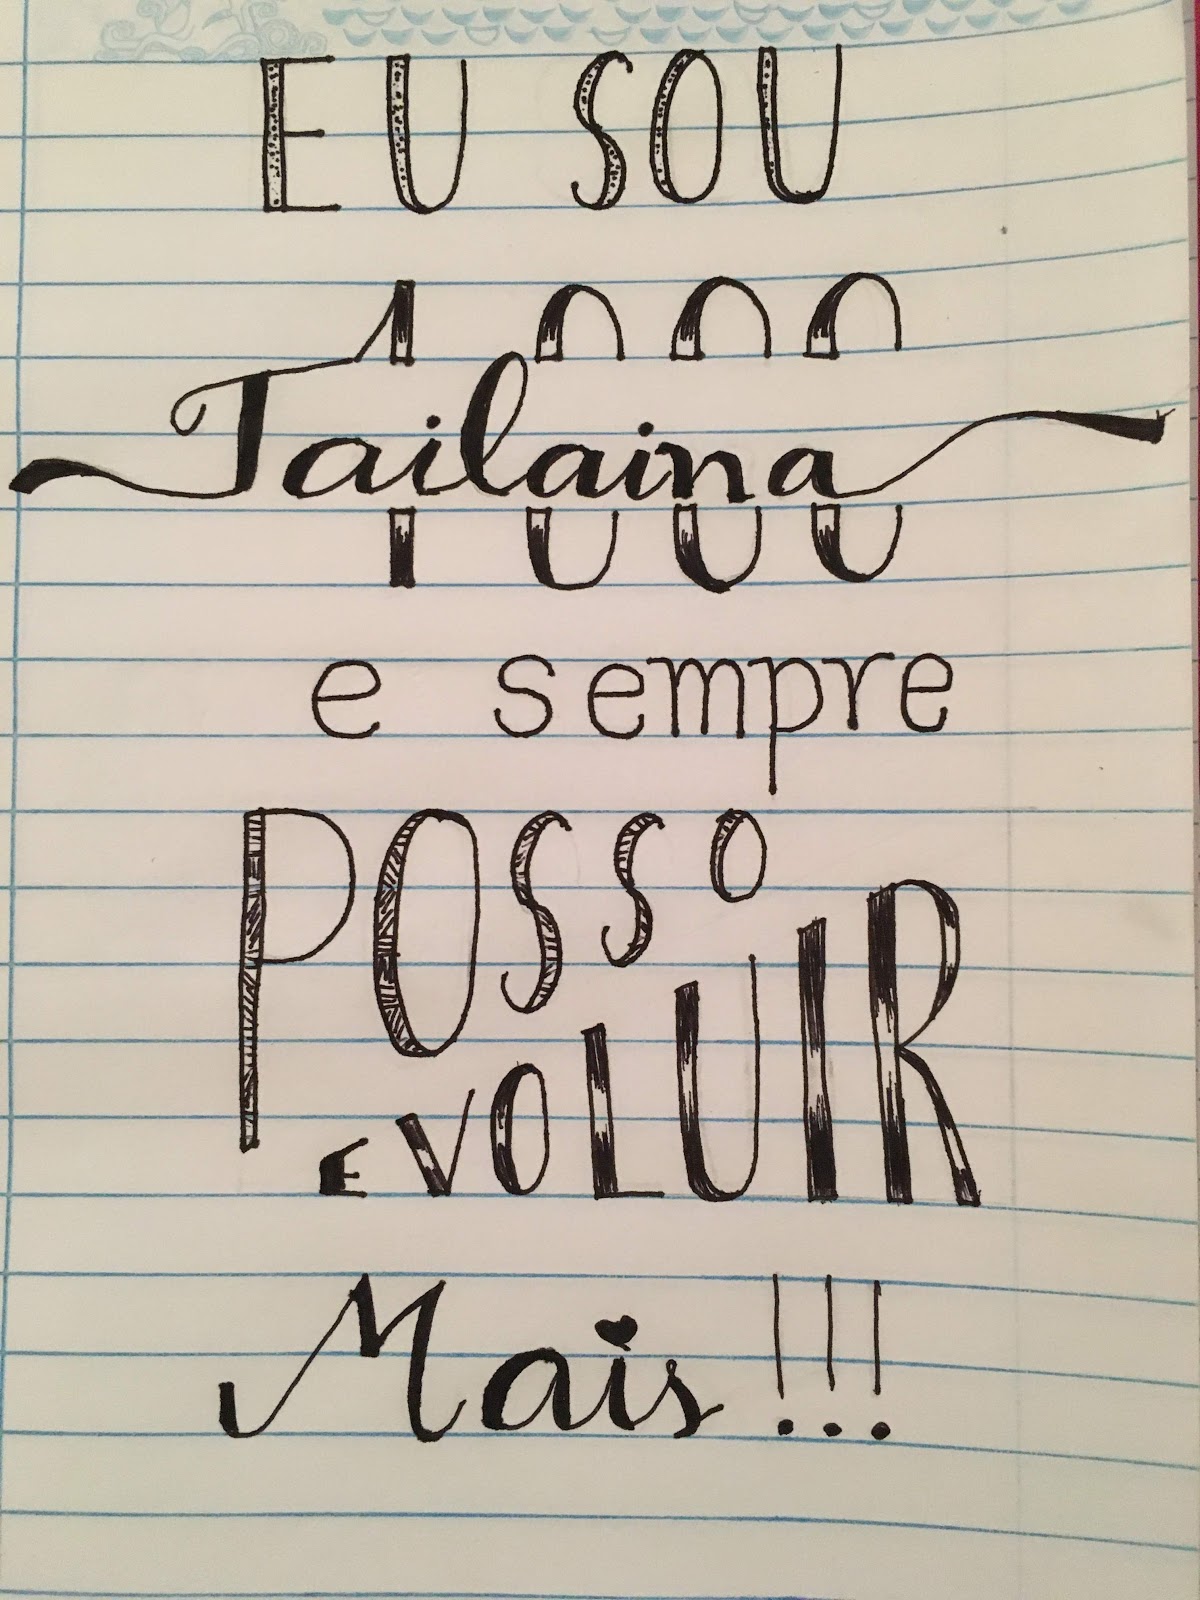 EU SOU
1000
Tailaina
e sempre
POSSO
EVOLUIR
Mais!!!